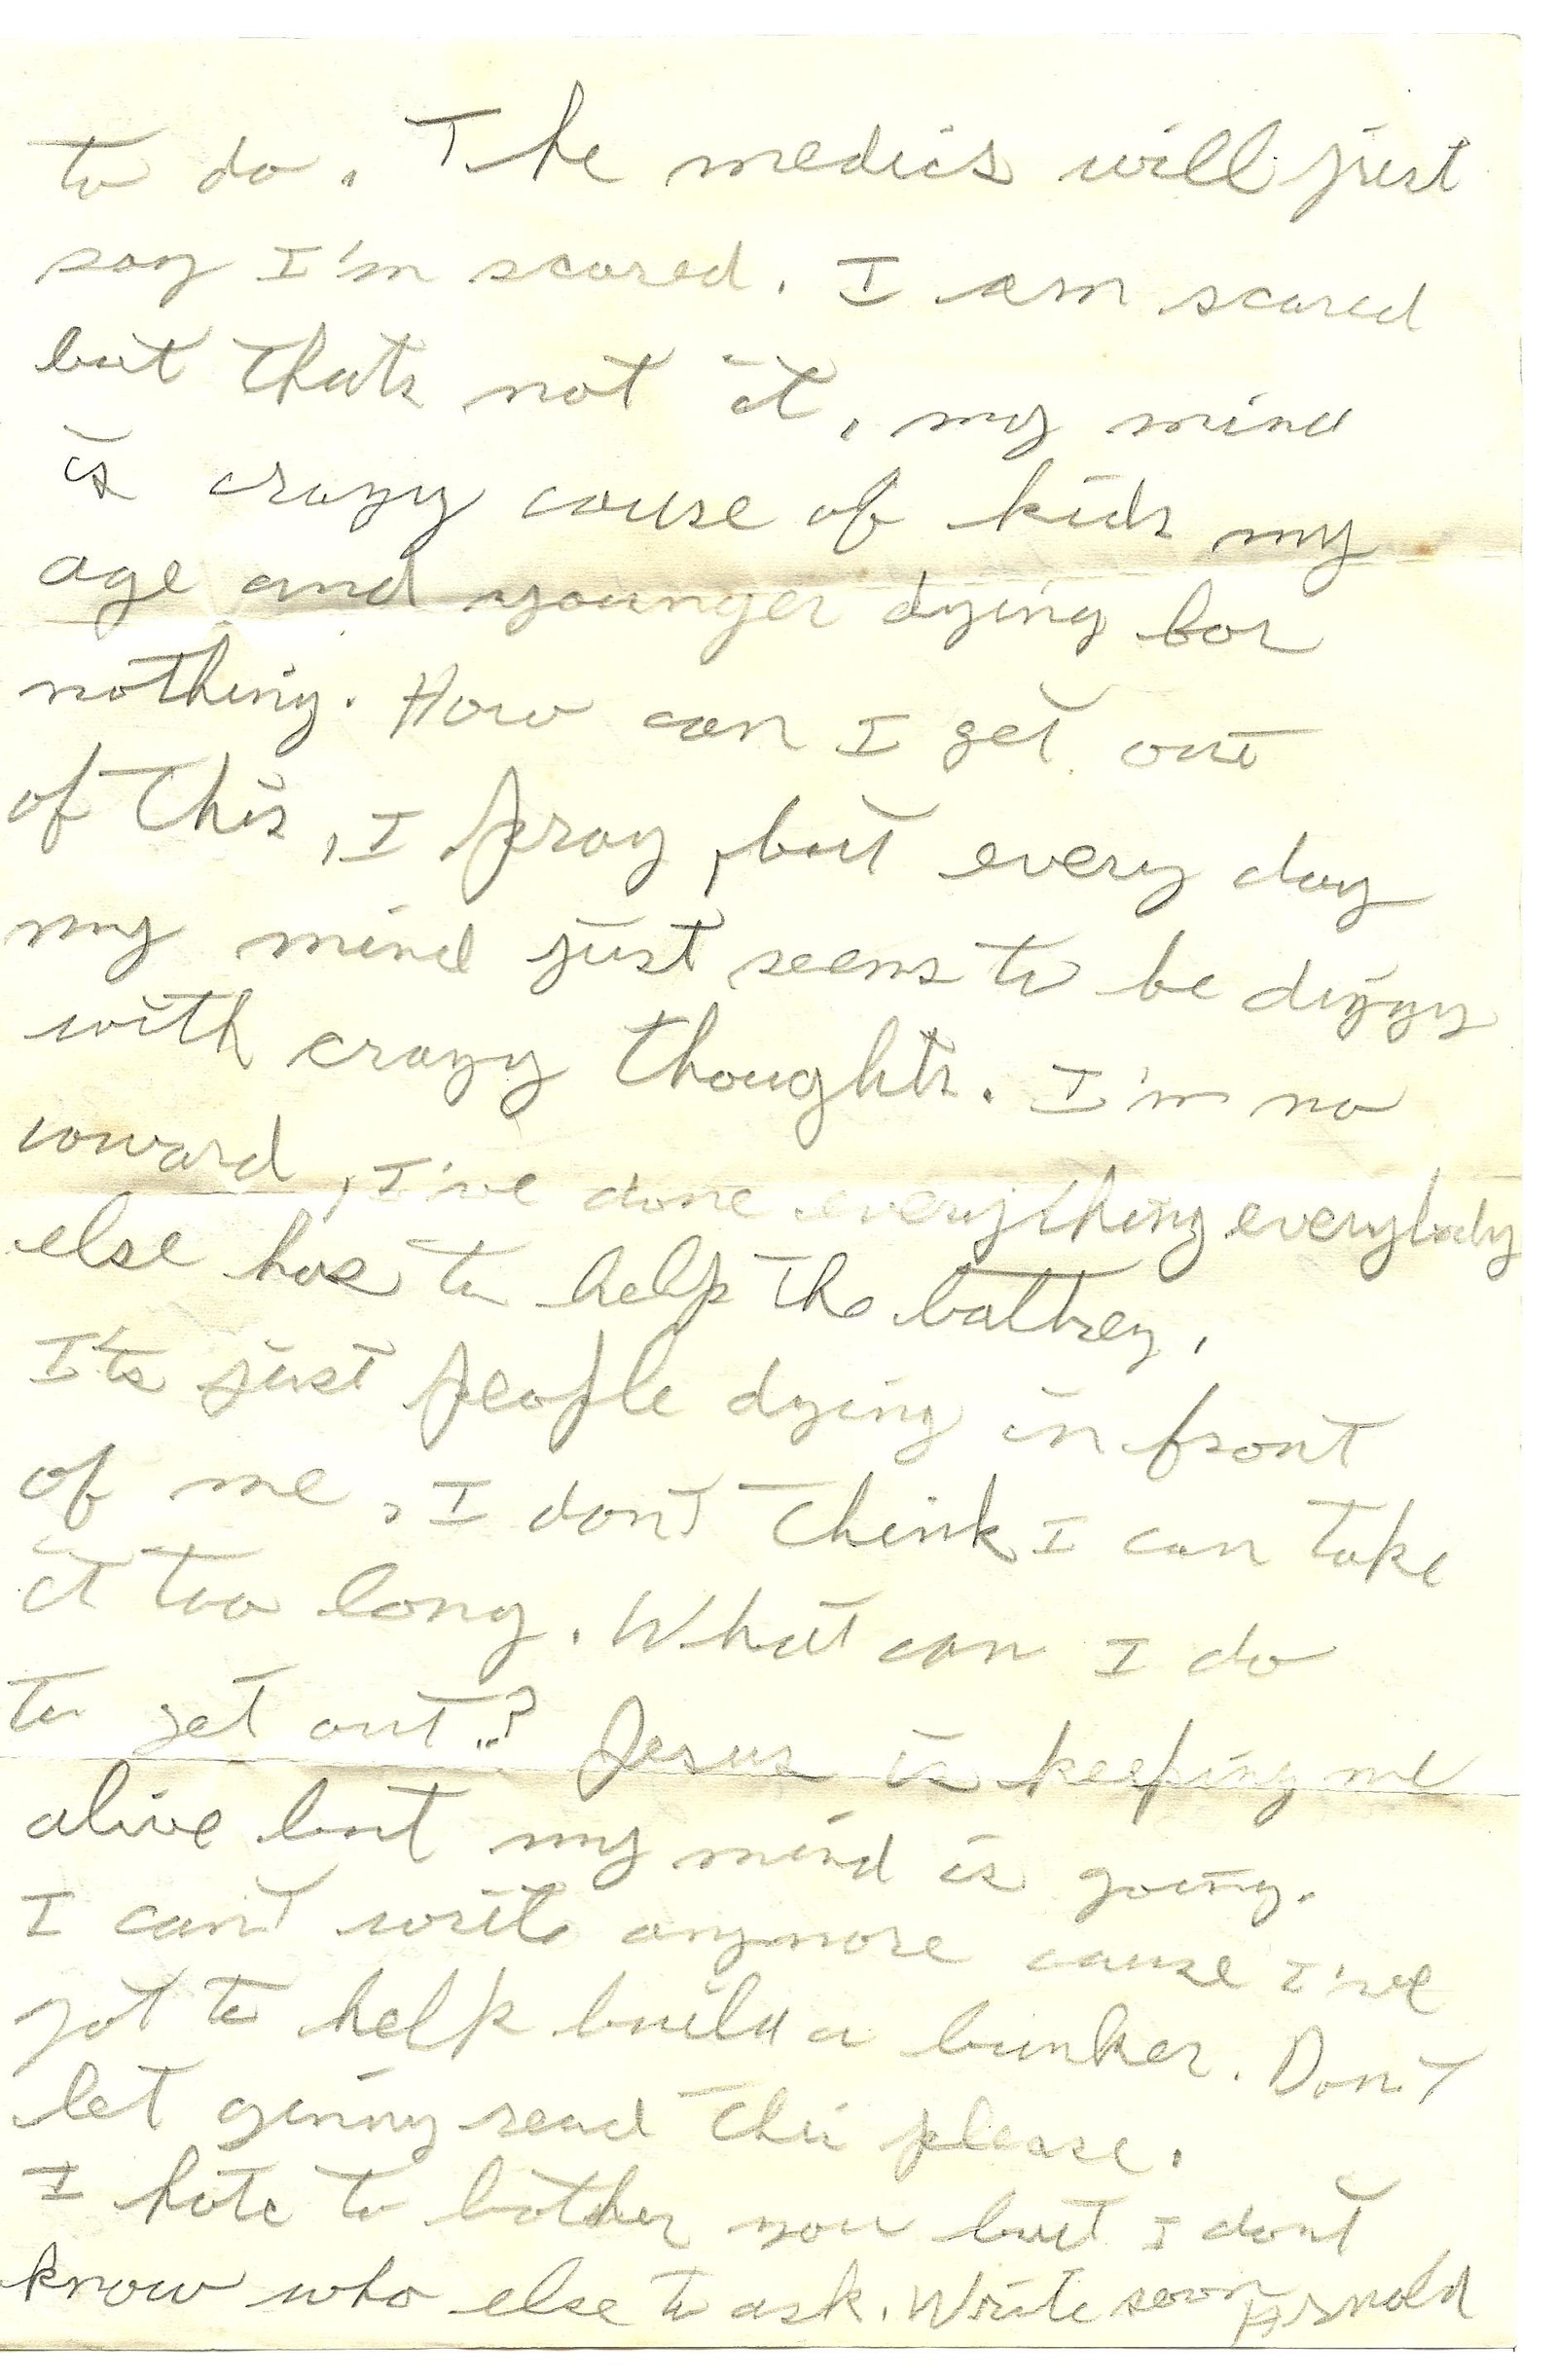 to do. The medics will just
say I'm scared. I am scared
but thats not it, my mind
is crazy cause of kids my
age and younger dying for
nothing. How can I get out
of this, I pray, but every day
my mind just seems to be dizzy
with crazy thoughts. I'm no
coward, I've done everything everybody
else has to help the battrey,
It's just people dying in front
of me, I don't think I can take
it too long. What can I do
to get out..? Jesus is keeping me
alive but my mind is going.
I can't write anymore cause I've
got to help build a bunker. Don't
let ginny read this please.
I hate to bother you but I don't
know who else to ask. Write soon Arnold